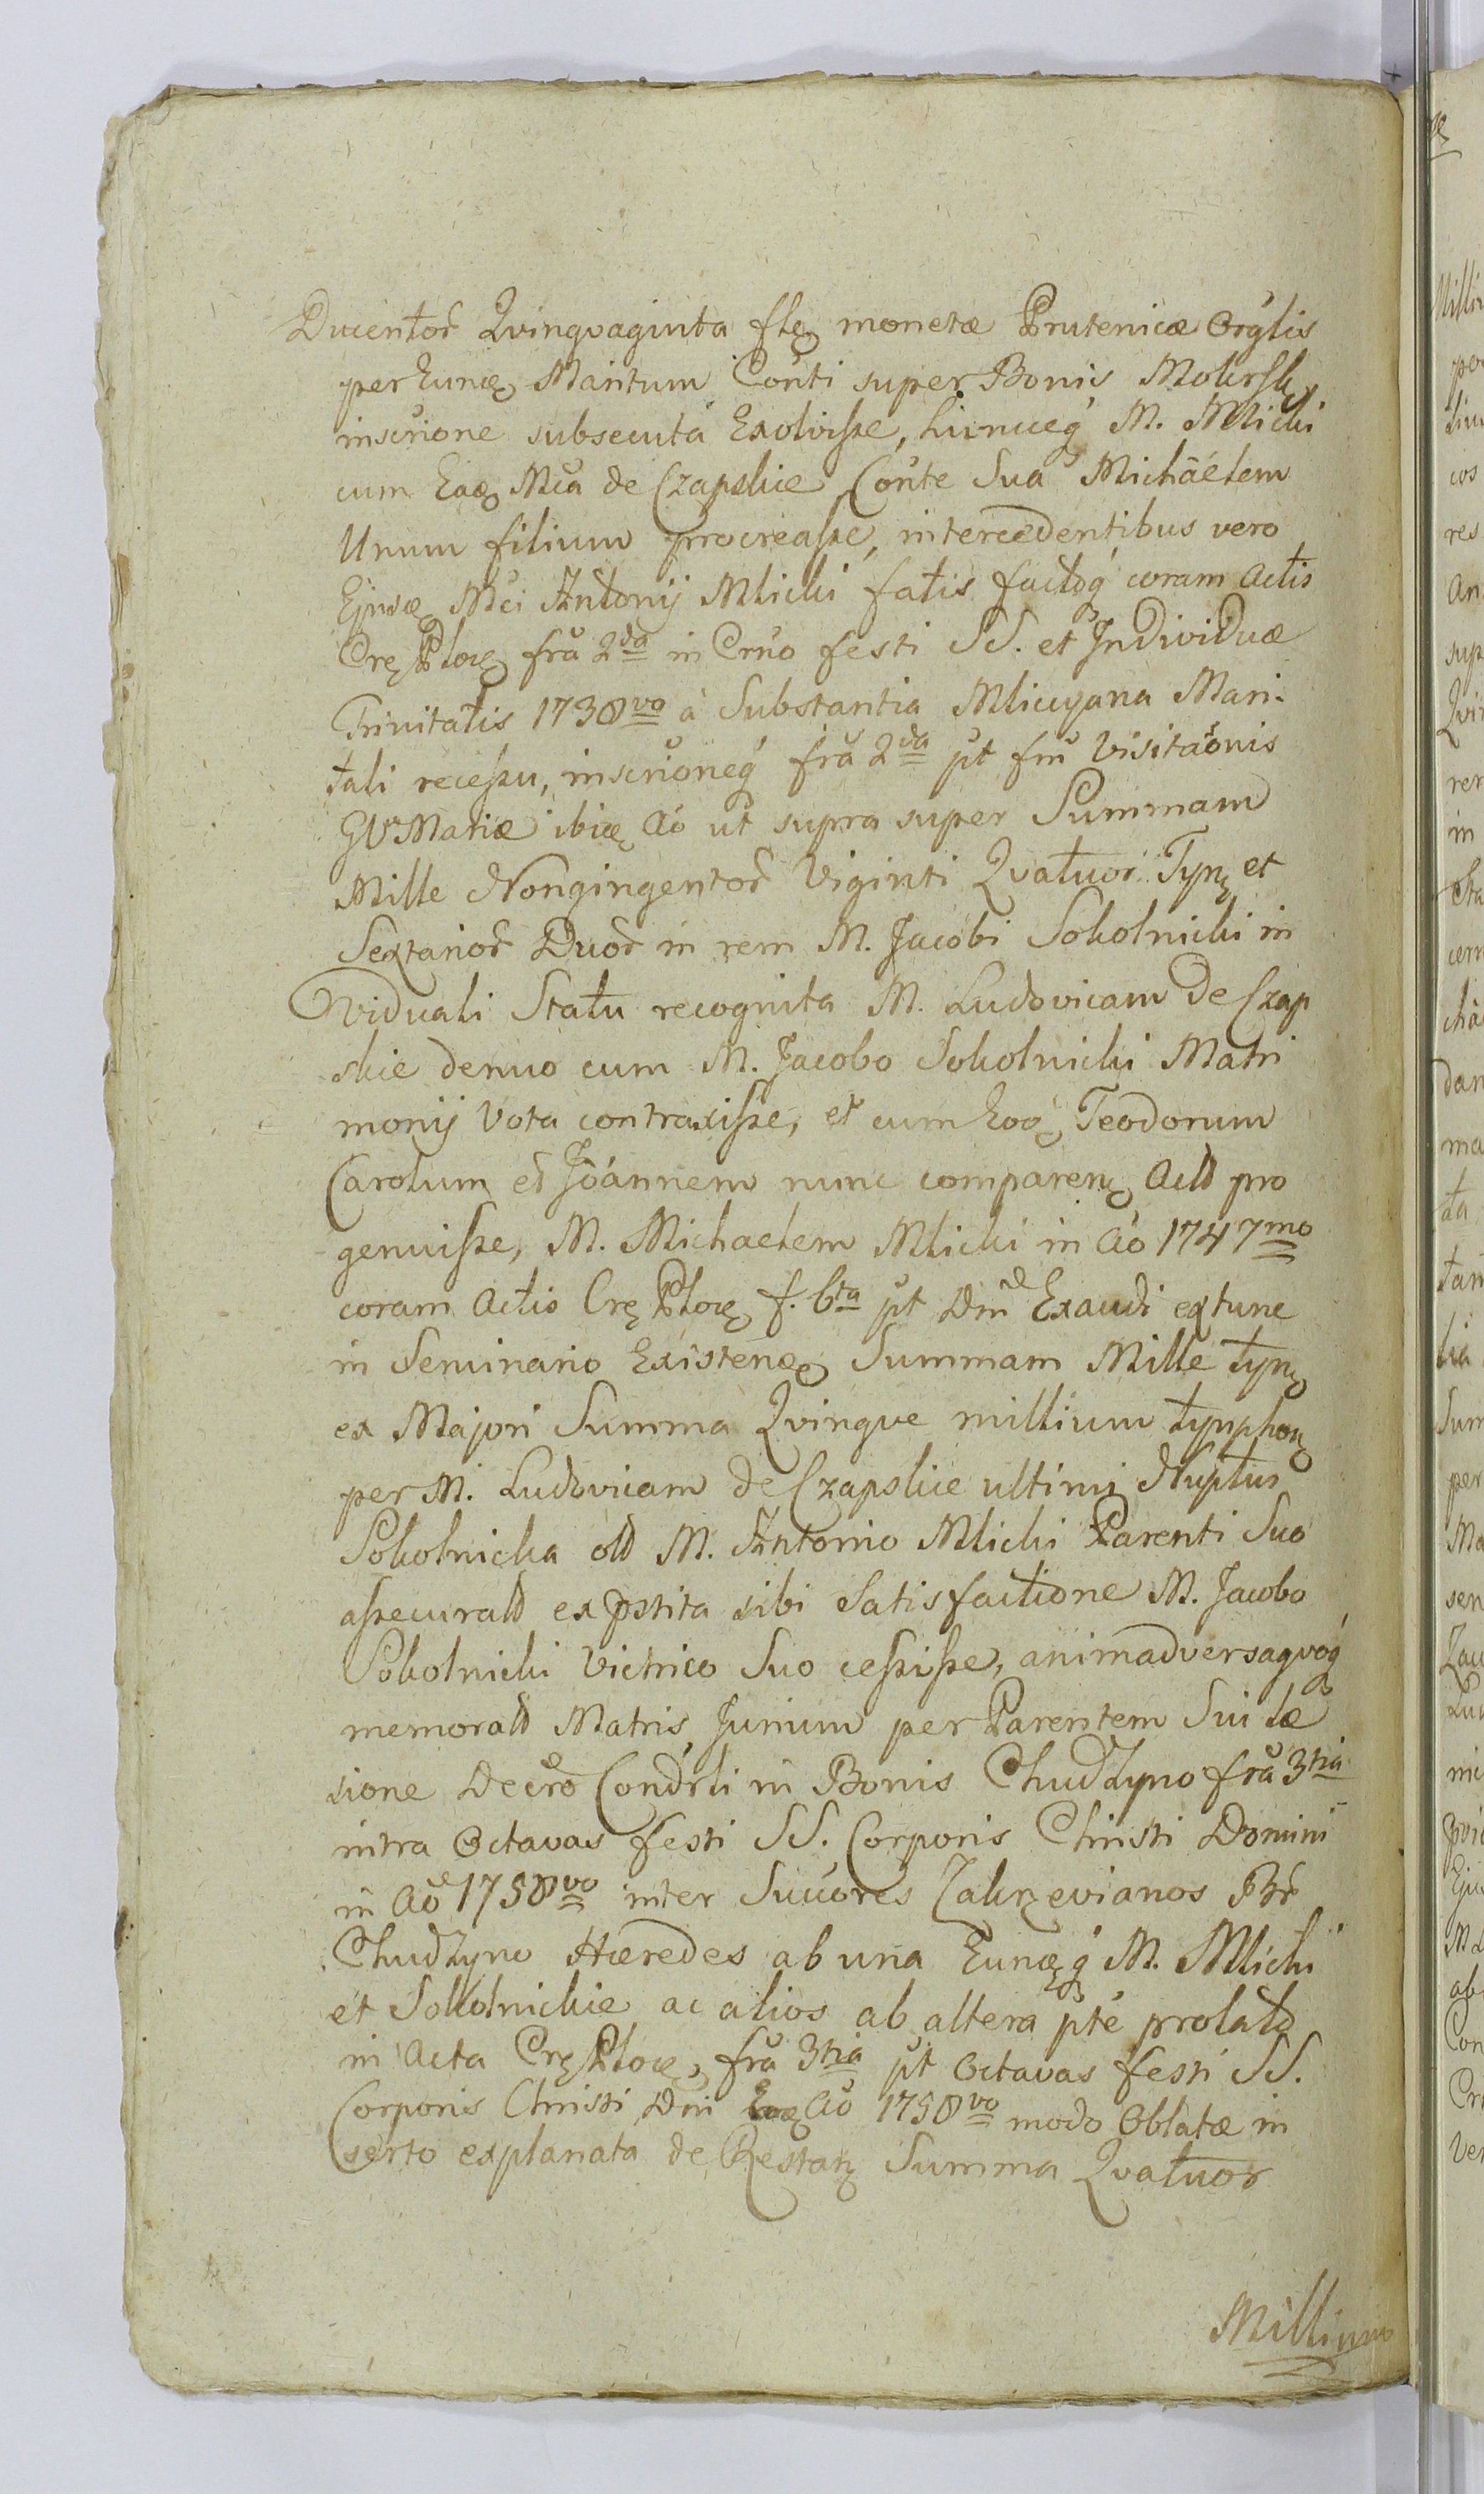 Ducentor Qvingvaginta flę monetæ Prutenicæ Orglis
per Eunæ Maritum Conti super Bonis Mokrsk
inscrione subsecuta Exolvisse, hincceq M. Mlicki
cum Eaæ Mca de Czapskie Conte Sua Michäelem
Unum filium procreasse, intercedentibus vero
Ejusæ Mci Antonij Mlicki fatis factoq coram Actis
Crę Płocę fra 2da in Crno festi SS. et Individuæ
Trinitatis 1738vo à Substantia Mlicciana Mari-
tali recessu, inscrioneq fra 2da pt fm Visitaonis
GVMariæ ibiæ Aó ut supra super Summam
Mille Nongingentor Viginti Qvatuor Tynę et
Sextarior Duor in rem M. Jacobi Sokolnicki in
Viduali Statu recognita M. Ludovicam de Czap
skie denuo cum M. Jacobo Sokolnicki Matri
monij Vota contraxisse, et cum Eoæ Teodorum
Carolum et Joánnem nunc comparenę Actt pro
genuisse, M. Michaelem Mlicki in Aó 1747mo
coram Actis Crę Płocę f. 6ta pt Dm Exaudi extunc
in Seminario Existenæ Summam Mille tynę
ex Majori Summa Qvinque millium tymphonę
per M. Ludovicam de Czapskie ultimi Nuptus
Sokolnicka olt M. Antonio Mlicki Parenti Suo
assecuratt ex pstita sibi Satisfactione M. Jacobo
Sokolnicki Victrico Suo cessisse, animadversaqvoq
memoratt Matris Jurium per Parentem Sui læ
sione Decro Condrli in Bonis Chudzyno fra 3tia
intra Octavas festi SS. Corporis Christi Domini
in Aó 1758vo inter Succores Zakrzevianos Br
Chudzyno Hæredes ab una Eunæq M. Mlicki
et Sokolnickie ac alios ab altera pte prolato
in Acta Crę Płocę, fra 3tia pt Octavas festi SS.
Corporis Christi Dni Eoæ Aó 1758vo modo Oblatæ in
serto explanata de Restanę Summa Qvatuor
Millium